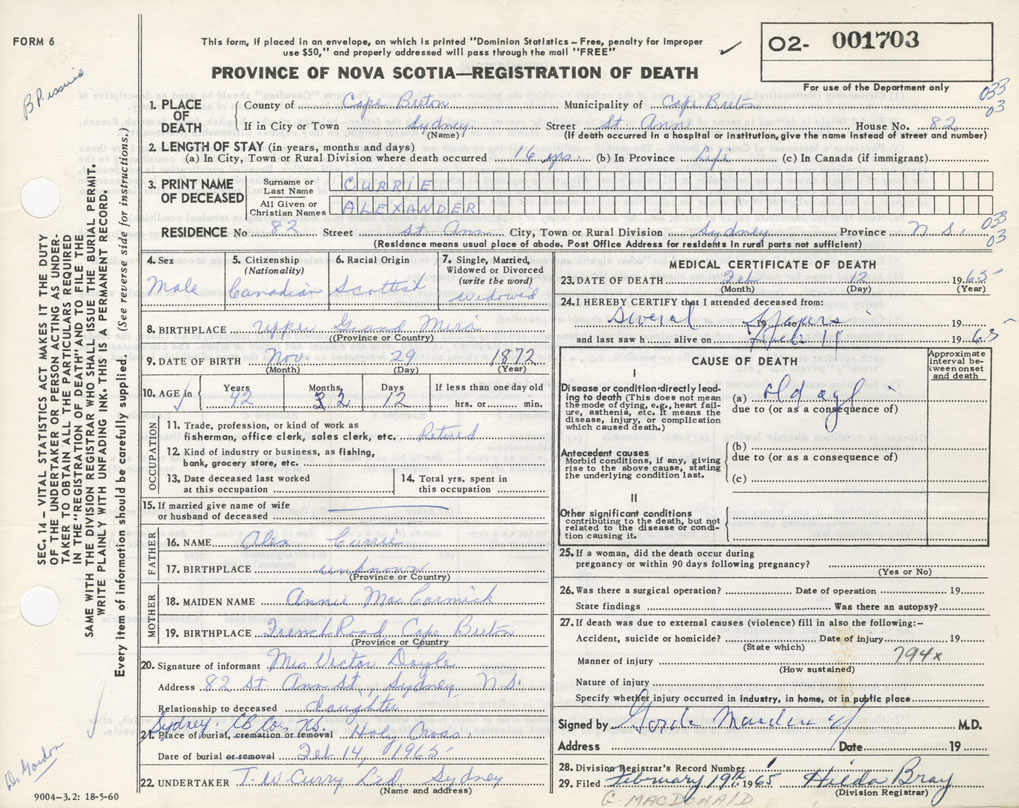 FORM 6
This form, if placed in an envelope, on which is printed "Dominion Statistics – Free, penalty for improper
use $50," and properly addressed will pass through the mail "FREE"
PROVINCE OF NOVA SCOTIA—REGISTRATION OF DEATH
O2- 001703
For use of the Department only
033
03
1. PLACE OF DEATH
County of Cape Breton Municipality of Cape Breton
If in City or Town Sydney Street St. Ann House No. 82
(Name) (If death occurred in hospital or institution, give the name instead of street and number)
2. LENGTH OF STAY (in years, months and days)
(a) In City, Town or Rural Division where death occurred 16 yrs. (b) In Province Life (c) In Canada (if immigrant)
3. PRINT NAME OF DECEASED
Surname or Last Name CURRIE
All Given or Christian Names ALEXANDER
RESIDENCE No 82 Street St. Ann City, Town or Rural Division Sydney Province N.S.
033
03
(Residence means usual place of abode. Post Office Address for residents in rural parts not sufficient)
4. Sex Male
5. Citizenship (Nationality) Canadian
6. Racial Origin Scottish
7. Single, Married, Widowed or Divorced (write the word) widowed
8. BIRTHPLACE Upper Grand Mira
(Province or Country)
9. DATE OF BIRTH Nov. 29 1872
(Month) (Day) (Year)
10. AGE in Years 92 Months 2 Days 12 If less than one day old hrs. or min.
OCCUPATION
11. Trade, profession, or kind of work as
fisherman, office clerk, sales clerk, etc. Retired
12. Kind of industry or business, as fishing,
bank, grocery store, etc.
13. Date deceased last worked
at this occupation
14. Total yrs. spent in
this occupation
15. If married give name of wife
or husband of deceased
FATHER
16. NAME Alex Currie
17. BIRTHPLACE unknown
(Province or Country)
MOTHER
18. MAIDEN NAME Annie MacCormick
19. BIRTHPLACE French Road Cape Breton
(Province or Country)
20. Signature of informant Mrs Victor Doyle
Address 82 St Ann St., Sydney N.S.
Relationship to deceased daughter
Sydney, CB Co. NS.
21. Place of burial, cremation or removal Holy Cross
Date of burial or removal Feb 14, 1965
22. UNDERTAKER T. W. Curry Ltd Sydney
(Name and address)
9004-3.2: 18-5-60
MEDICAL CERTIFICATE OF DEATH
23. DATE OF DEATH Feb 12 1965
(Month) (Day) (Year)
24. I HEREBY CERTIFY that I attended deceased from:
Several years 19 to 19
and last saw h alive on Feb 11 1965
CAUSE OF DEATH
Approximate interval between onset and death
I
Disease or condition directly leading
to death (This does not mean
the mode of dying, e.g., heart failure,
asthenia, etc. It means the
disease, injury, or complication
which caused death.)
(a) old age
due to (or as a consequence of)
Antecedent causes
Morbid conditions, if any, giving
rise to the above cause, stating
the underlying condition last.
(b)
due to (or as a consequence of)
(c)
II
Other significant conditions
contributing to the death, but not
related to the disease or condition
causing it.
25. If a woman, did the death occur during
pregnancy or within 90 days following pregnancy?
(Yes or No)
26. Was there a surgical operation? Date of operation 19
State findings Was there an autopsy?
27. If death was due to external causes (violence) fill in also the following:-
Accident, suicide or homicide? Date of injury 19
(State which)
794x
Manner of injury
(How sustained)
Nature of injury
Specify whether injury occurred in industry, in home, or in public place
Signed by M.D.
Address Date 19
28. Division Registrar's Record Number
29. Filed February 19th 1965 Hilda Bray
(Division Registrar)
G. MACDONALD
SEC. 14 – VITAL STATISTICS ACT MAKES IT THE DUTY
OF THE UNDERTAKER OR PERSON ACTING AS UNDER-
TAKER TO OBTAIN ALL THE PARTICULARS REQUIRED
IN THE "REGISTRATION OF DEATH" AND TO FILE THE
SAME WITH THE DIVISION REGISTRAR WHO SHALL ISSUE THE BURIAL PERMIT.
WRITE PLAINLY WITH UNFADING INK. THIS IS A PERMANENT RECORD.
Every item of information should be carefully supplied. (See reverse side for instructions.)
Dr. Gordon